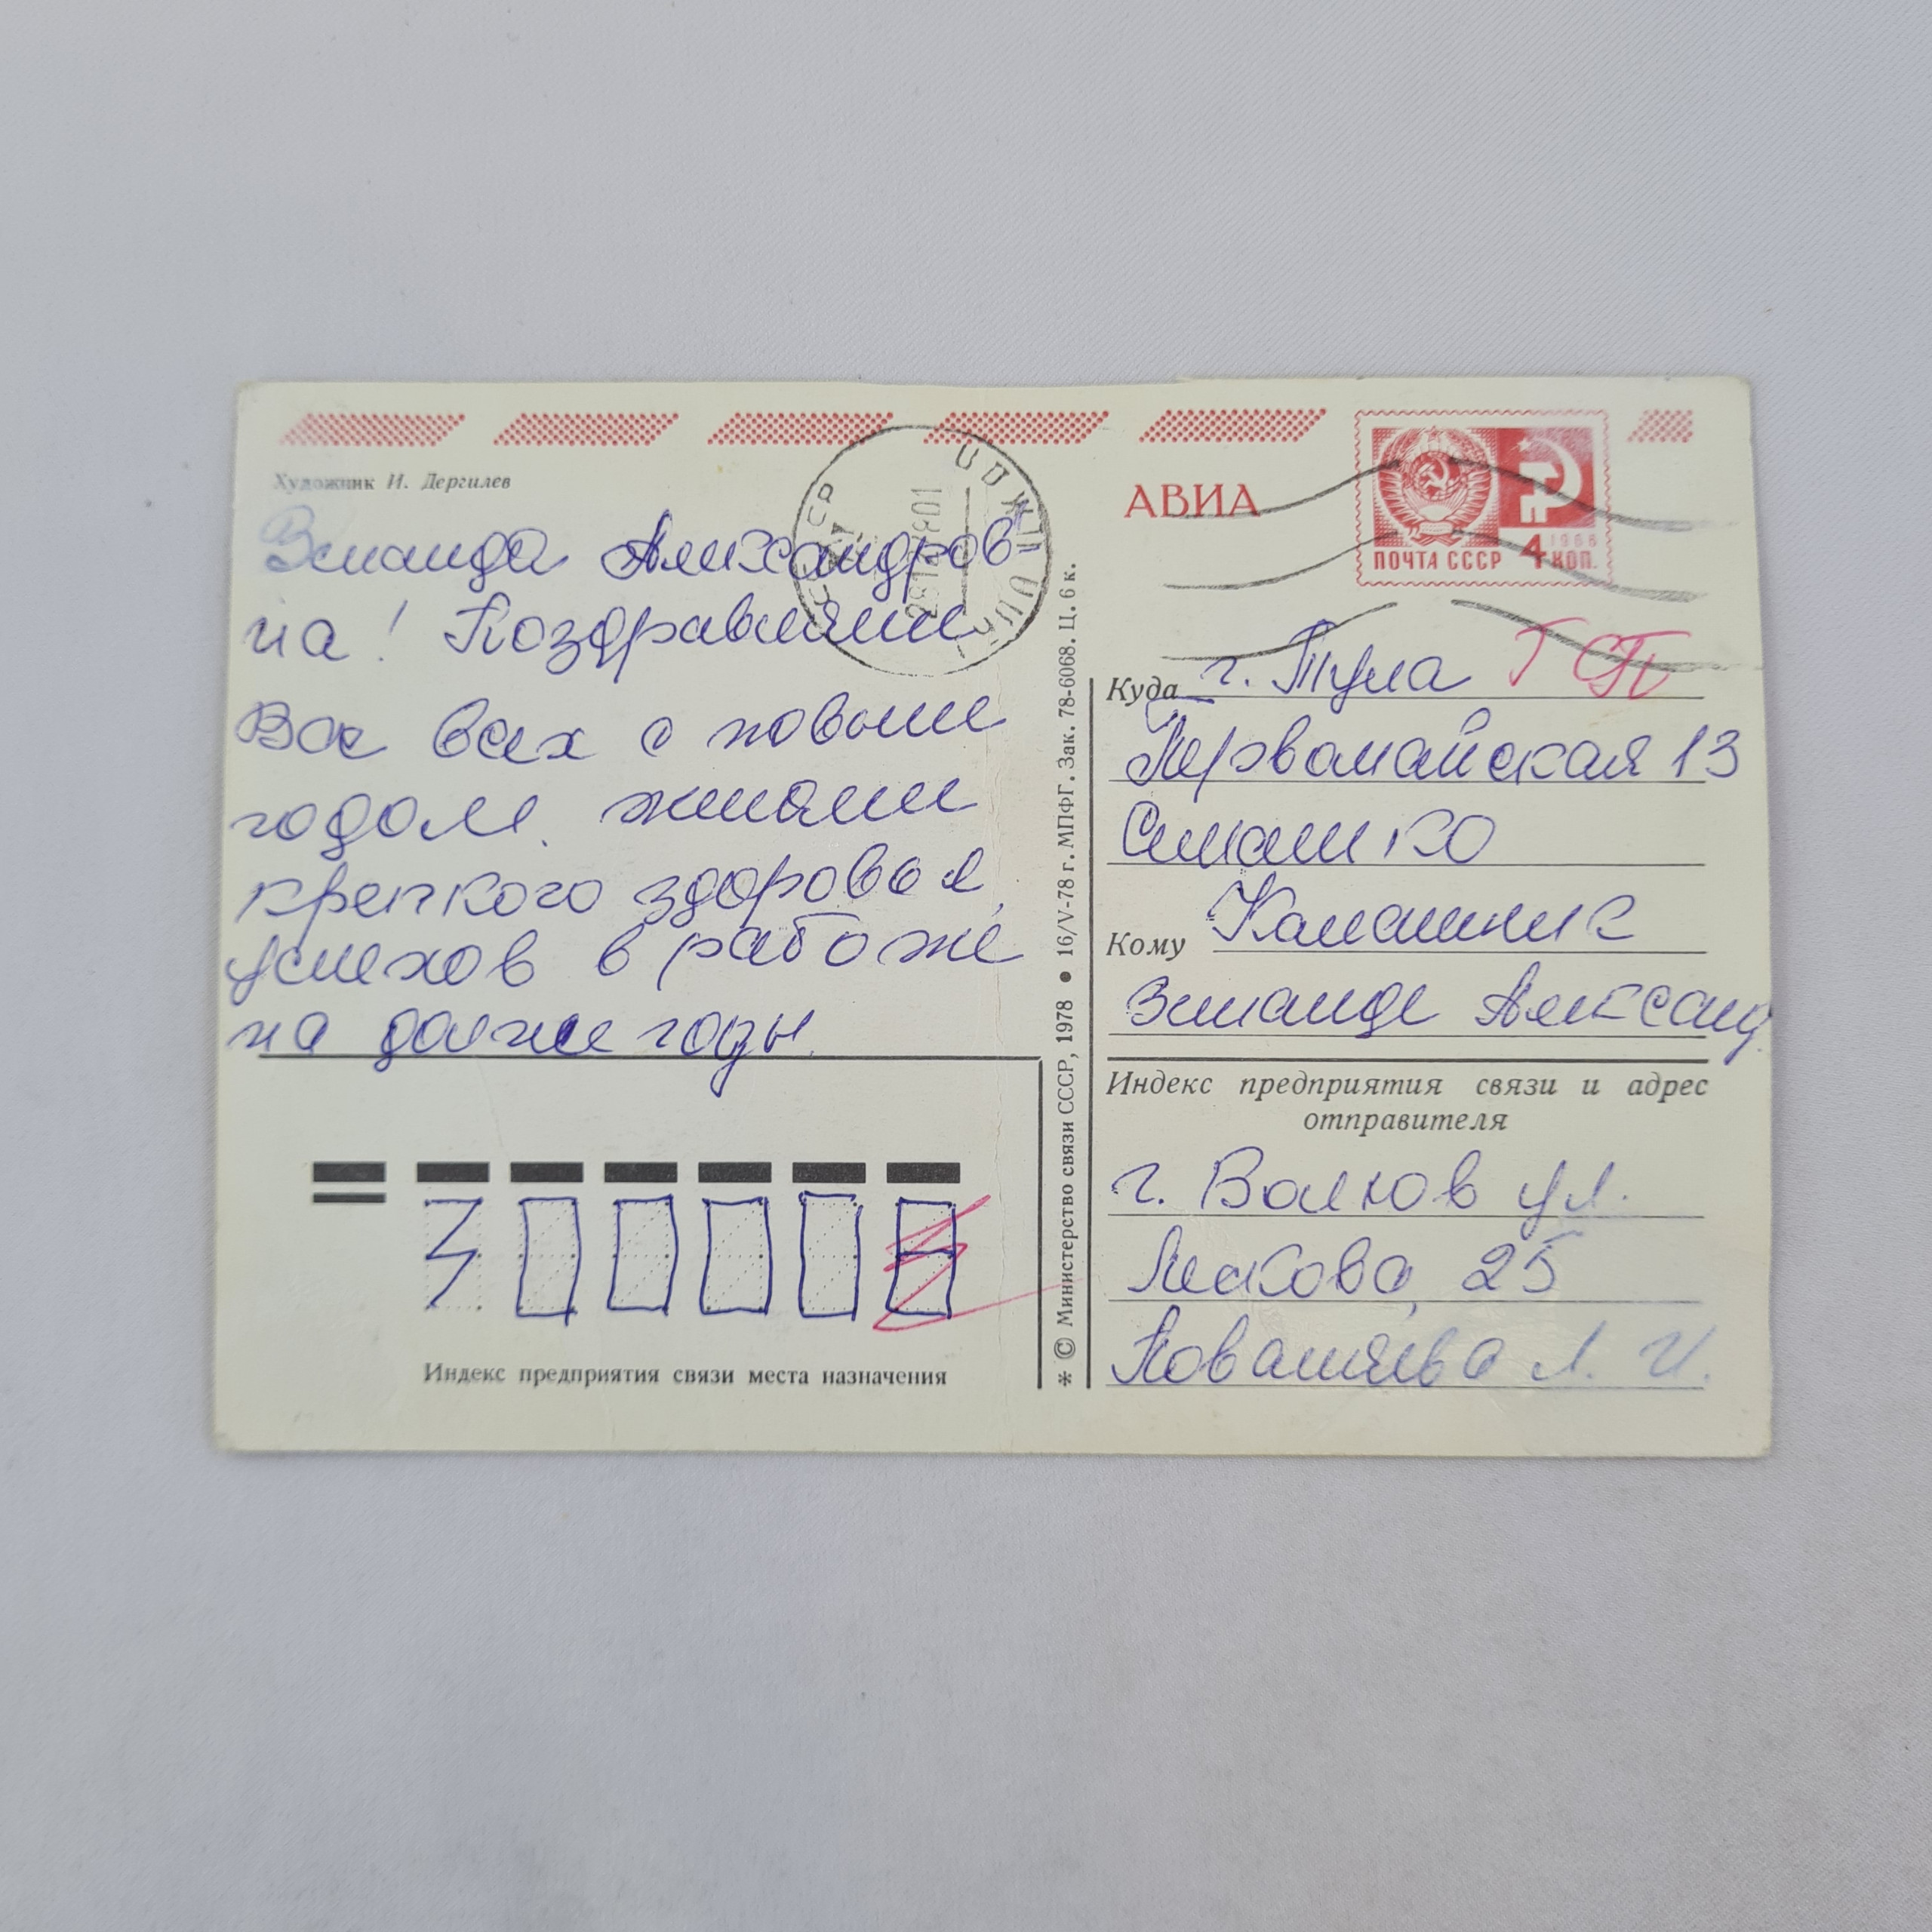 Художник И. Дергилев
Эманда Александров
на! Поздравляем
Вас всех с новым
годом. желаем
крепкого здоровья,
успехов в работе
на долгие годы.
Индекс предприятия связи места назначения
* © Министерство связи СССР, 1978 • 16/V-78 г. МПФГ. Зак. 78-6068. Ц. 6 к.
СССР
АВИА
ПОЧТА СССР 4 КОП.
1966
Куда г. Тула
Первомайская 13
Кому
Эманде Александ
Индекс предприятия связи и адрес
отправителя
г. Волхов ул.
25
Л. И.